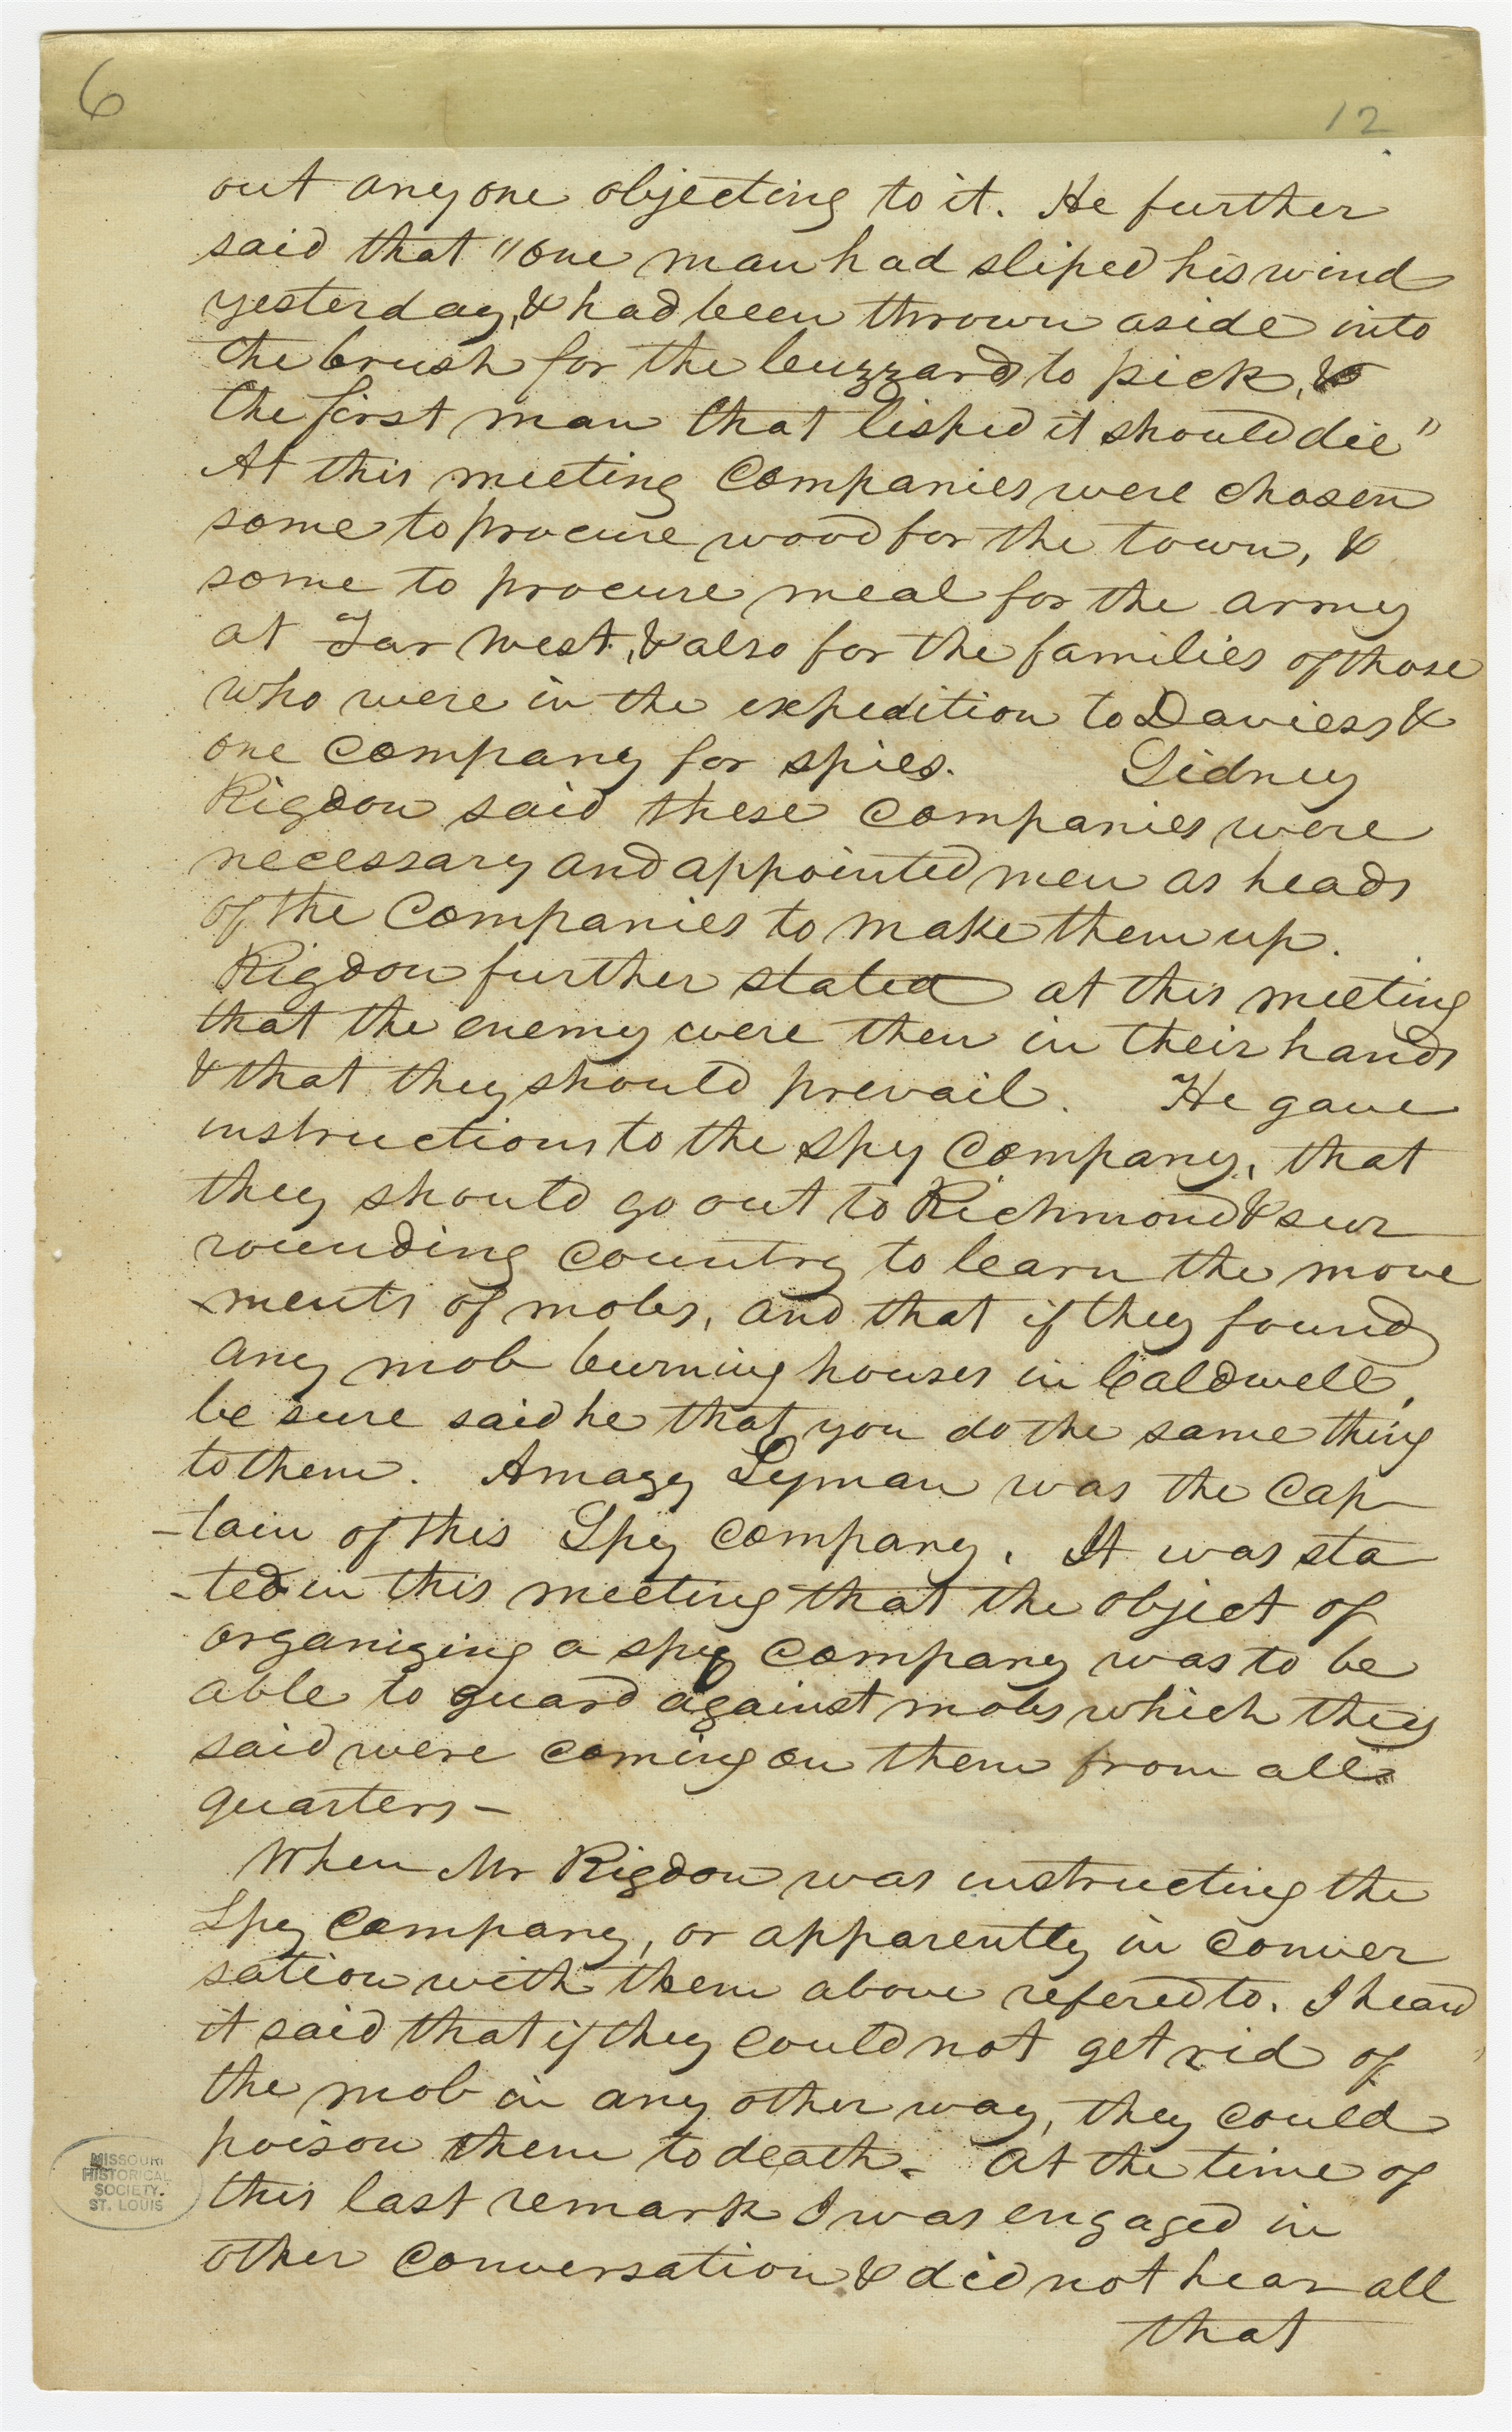 6
12
out any one objecting to it. He further
said that "one man had sliped his wind
yesterday, & had been thrown aside into
the brush for the buzzards to pick, &
the first man that lisped it should die"
At this meeting Companies were chosen
some to procure wood for the town, &
some to procure meal for the army
at Far West, & also for the families of those
who were in the expedition to Daviess &
one Company for spies. Sidney
Rigdon said these Companies were
necessary and appointed men as heads
of the Companies to make them up.
Rigdon further stated at this meeting
that the enemy were then in their hands
& that they should prevail. He gave
instructions to the spy Company, that
they should go out to Richmond & sur
rounding Country to learn the move
-ments of mobs, and that if they found
any mob burning houses in Caldwell,
be sure said he that you do the same thing
to them. Amazy Lyman was the Cap-
-tain of this Spy Company. It was sta
-ted in this meeting that the object of
organizing a spy Company was to be
able to guard against mobs which they
said were coming on them from all
quarters -
When Mr Rigdon was instructing the
Spy Company, or apparently in conver
sation with them above refered to. I heard
it said that if they could not get rid of
the mob in any other way, they could
poison them to death. At the time of
this last remark I was engaged in
other conversation & did not hear all
that
MISSOURI
HISTORICAL
SOCIETY.
ST. LOUIS